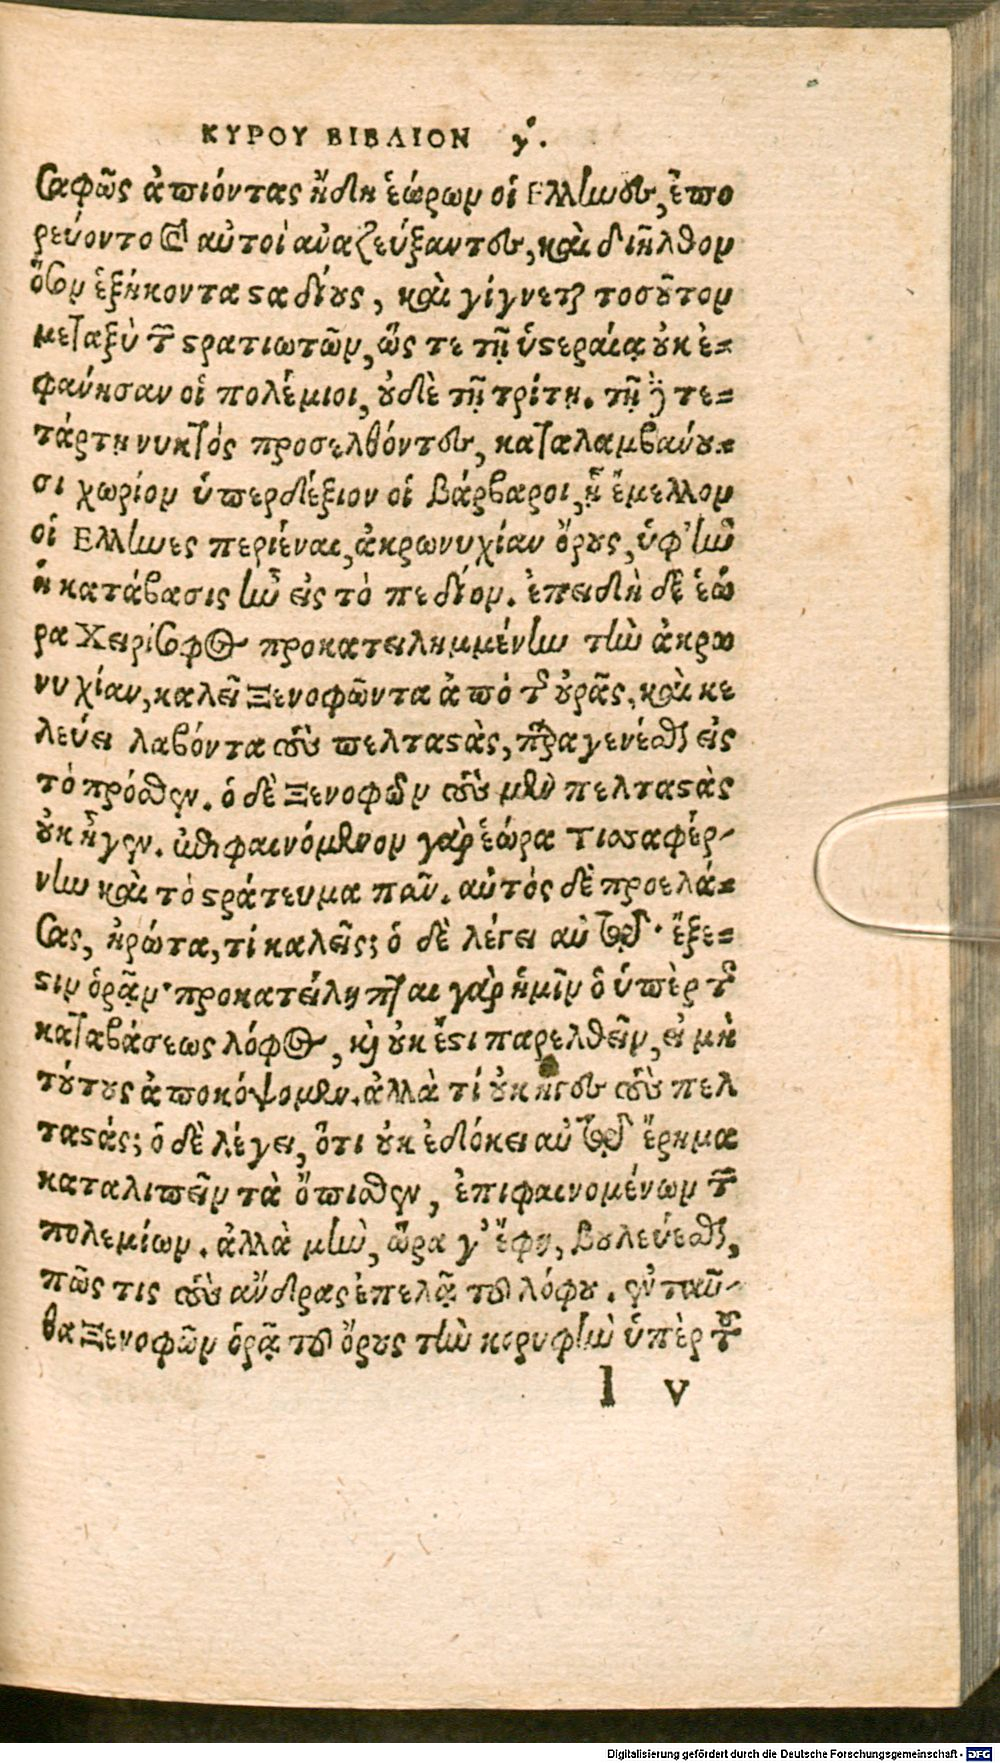 ΚΥΡΟΥ ΒΙΒΛΙΟΝ γ'.
σαφῶς ἀπιόντας ἤδη ἑώρων οἱ Ελληνες, ἐπο
ρεύοντο καὶ αὐτοὶ ἀναζεύξαντες, καὶ διῆλθον
ὅσον ἑξήκοντα ϛαδίους, καὶ γίγνεται τοσοῦτον
μεταξὺ τῶν ϛρατιωτῶν, ὥς τε τῇ ὑϛεραίᾳ οὐκ ἐ-
φάνησαν οἱ πολέμιοι, οὐδὲ τῇ τρίτῃ. τῇ δὲ τε-
τάρτῃ νυκτὸς προσελθόντες, καταλαμβάνου-
σι χωρίον ὑπερδέξιον οἱ βάρβαροι, ᾗ ἔμελλον
οἱ Ελληνες περιέναι, ἀκρωνυχίαν ὄρους, ὑφ' ἣν
ἡ κατάβασις ἦν εἰς τὸ πεδίον. ἐπειδὴ δὲ ἑώ
ρα Χειρίσοφος προκατειλημμένην τὴν ἀκρω
νυχίαν, καλεῖ Ξενοφῶντα ἀπὸ τῆς οὐρᾶς, καὶ κε
λεύει λαβόντα σὺν πελταϛὰς, παραγενέσθαι εἰς
τὸ πρόσθεν. ὁ δὲ Ξενοφῶν σὺν μὲν πελταϛὰς
οὐκ ἦγεν. ἐπιφαινόμενον γὰρ ἑώρα Τισσαφέρ-
νην καὶ τὸ ϛράτευμα πᾶν. αὐτὸς δὲ προελά-
σας, ἠρώτα, τί καλεῖς; ὁ δὲ λέγει αὐτῷ· ἔξε-
ϛιν ὁρᾷν· προκατείληπται γὰρ ἡμῖν ὁ ὑπὲρ τῆς
καταβάσεως λόφος, καὶ οὐκ ἔϛι παρελθεῖν, εἰ μὴ
τούτους ἀποκόψομεν. ἀλλὰ τί οὐκ ἦγες σὺν πελ
ταϛάς; ὁ δὲ λέγει, ὅτι οὐκ ἐδόκει αὐτῷ ἔρημα
καταλιπεῖν τὰ ὄπισθεν, ἐπιφαινομένων τῶν
πολεμίων. ἀλλὰ μὴν, ὥρα γ' ἔφη, βουλεύεσθαι,
πῶς τις σὺν ἄνδρας ἐπελᾷ τοῦ λόφου. ἐνταῦ-
θα Ξενοφῶν ὁρᾷ τοῦ ὄρους τὴν κορυφὴν ὑπὲρ τοῦ
l v
Digitalisierung gefördert durch die Deutsche Forschungsgemeinschaft - DFG